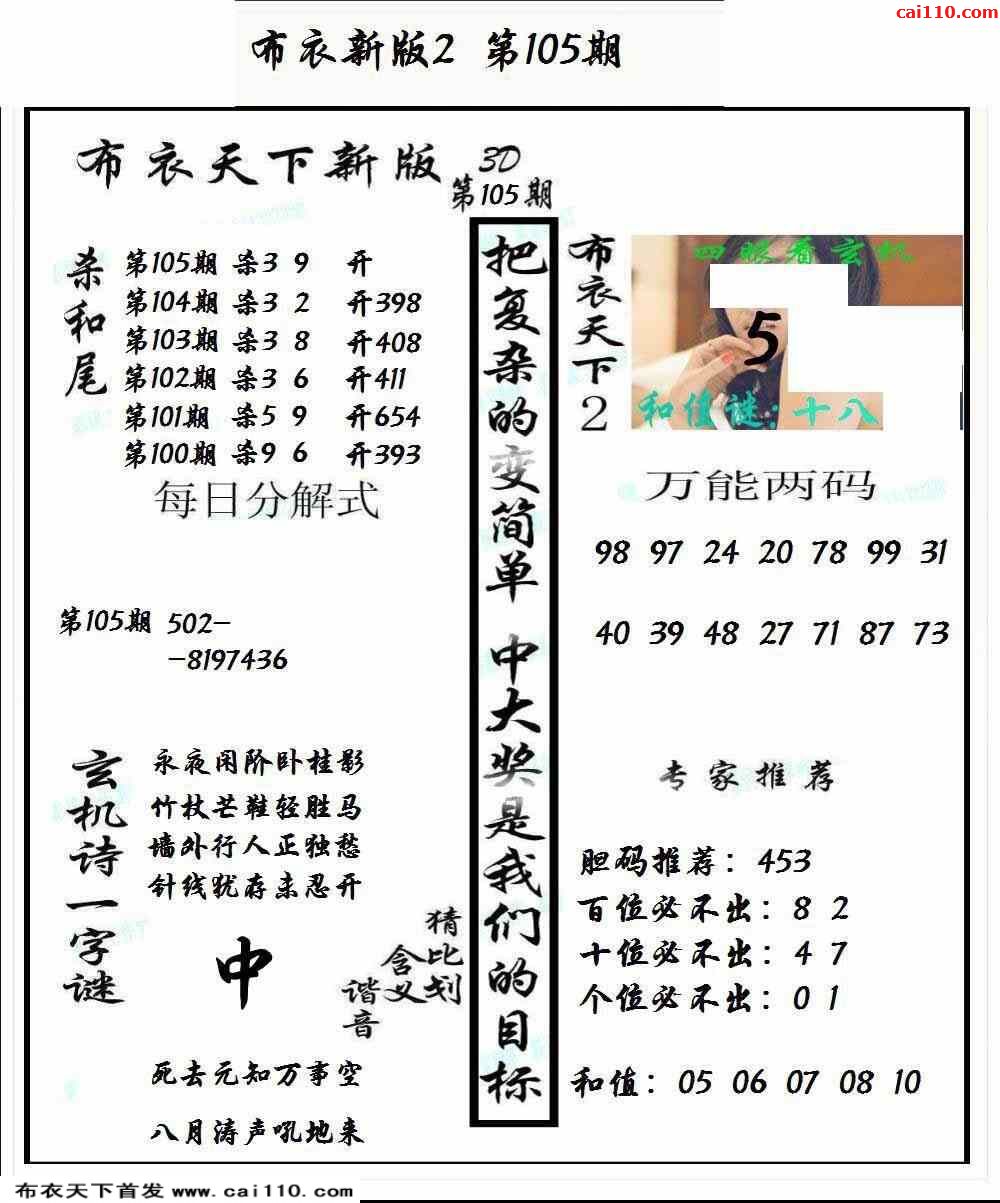 cai110.com
布衣新版2 第105期
布衣天下新版
3D
第105期
杀和尾
第105期 杀3 9 开
第104期 杀3 2 开398
第103期 杀3 8 开408
第102期 杀3 6 开411
第101期 杀5 9 开654
第100期 杀9 6 开393
每日分解式
第105期 502-
-8197436
玄机诗一字谜
永夜闲阶卧桂影
竹杖芒鞋轻胜马
墙外行人正独愁
针线犹存未忍开
中
猜比划
含义
谐音
死去元知万事空
八月涛声吼地来
把复杂的变简单 中大奖是我们的目标
布衣天下2
四眼看玄机
5
和值谜:十八
万能两码
98 97 24 20 78 99 31
40 39 48 27 71 87 73
专家推荐
胆码推荐：453
百位必不出：8 2
十位必不出：4 7
个位必不出：0 1
和值：05 06 07 08 10
布衣天下首发 www.cai110.com